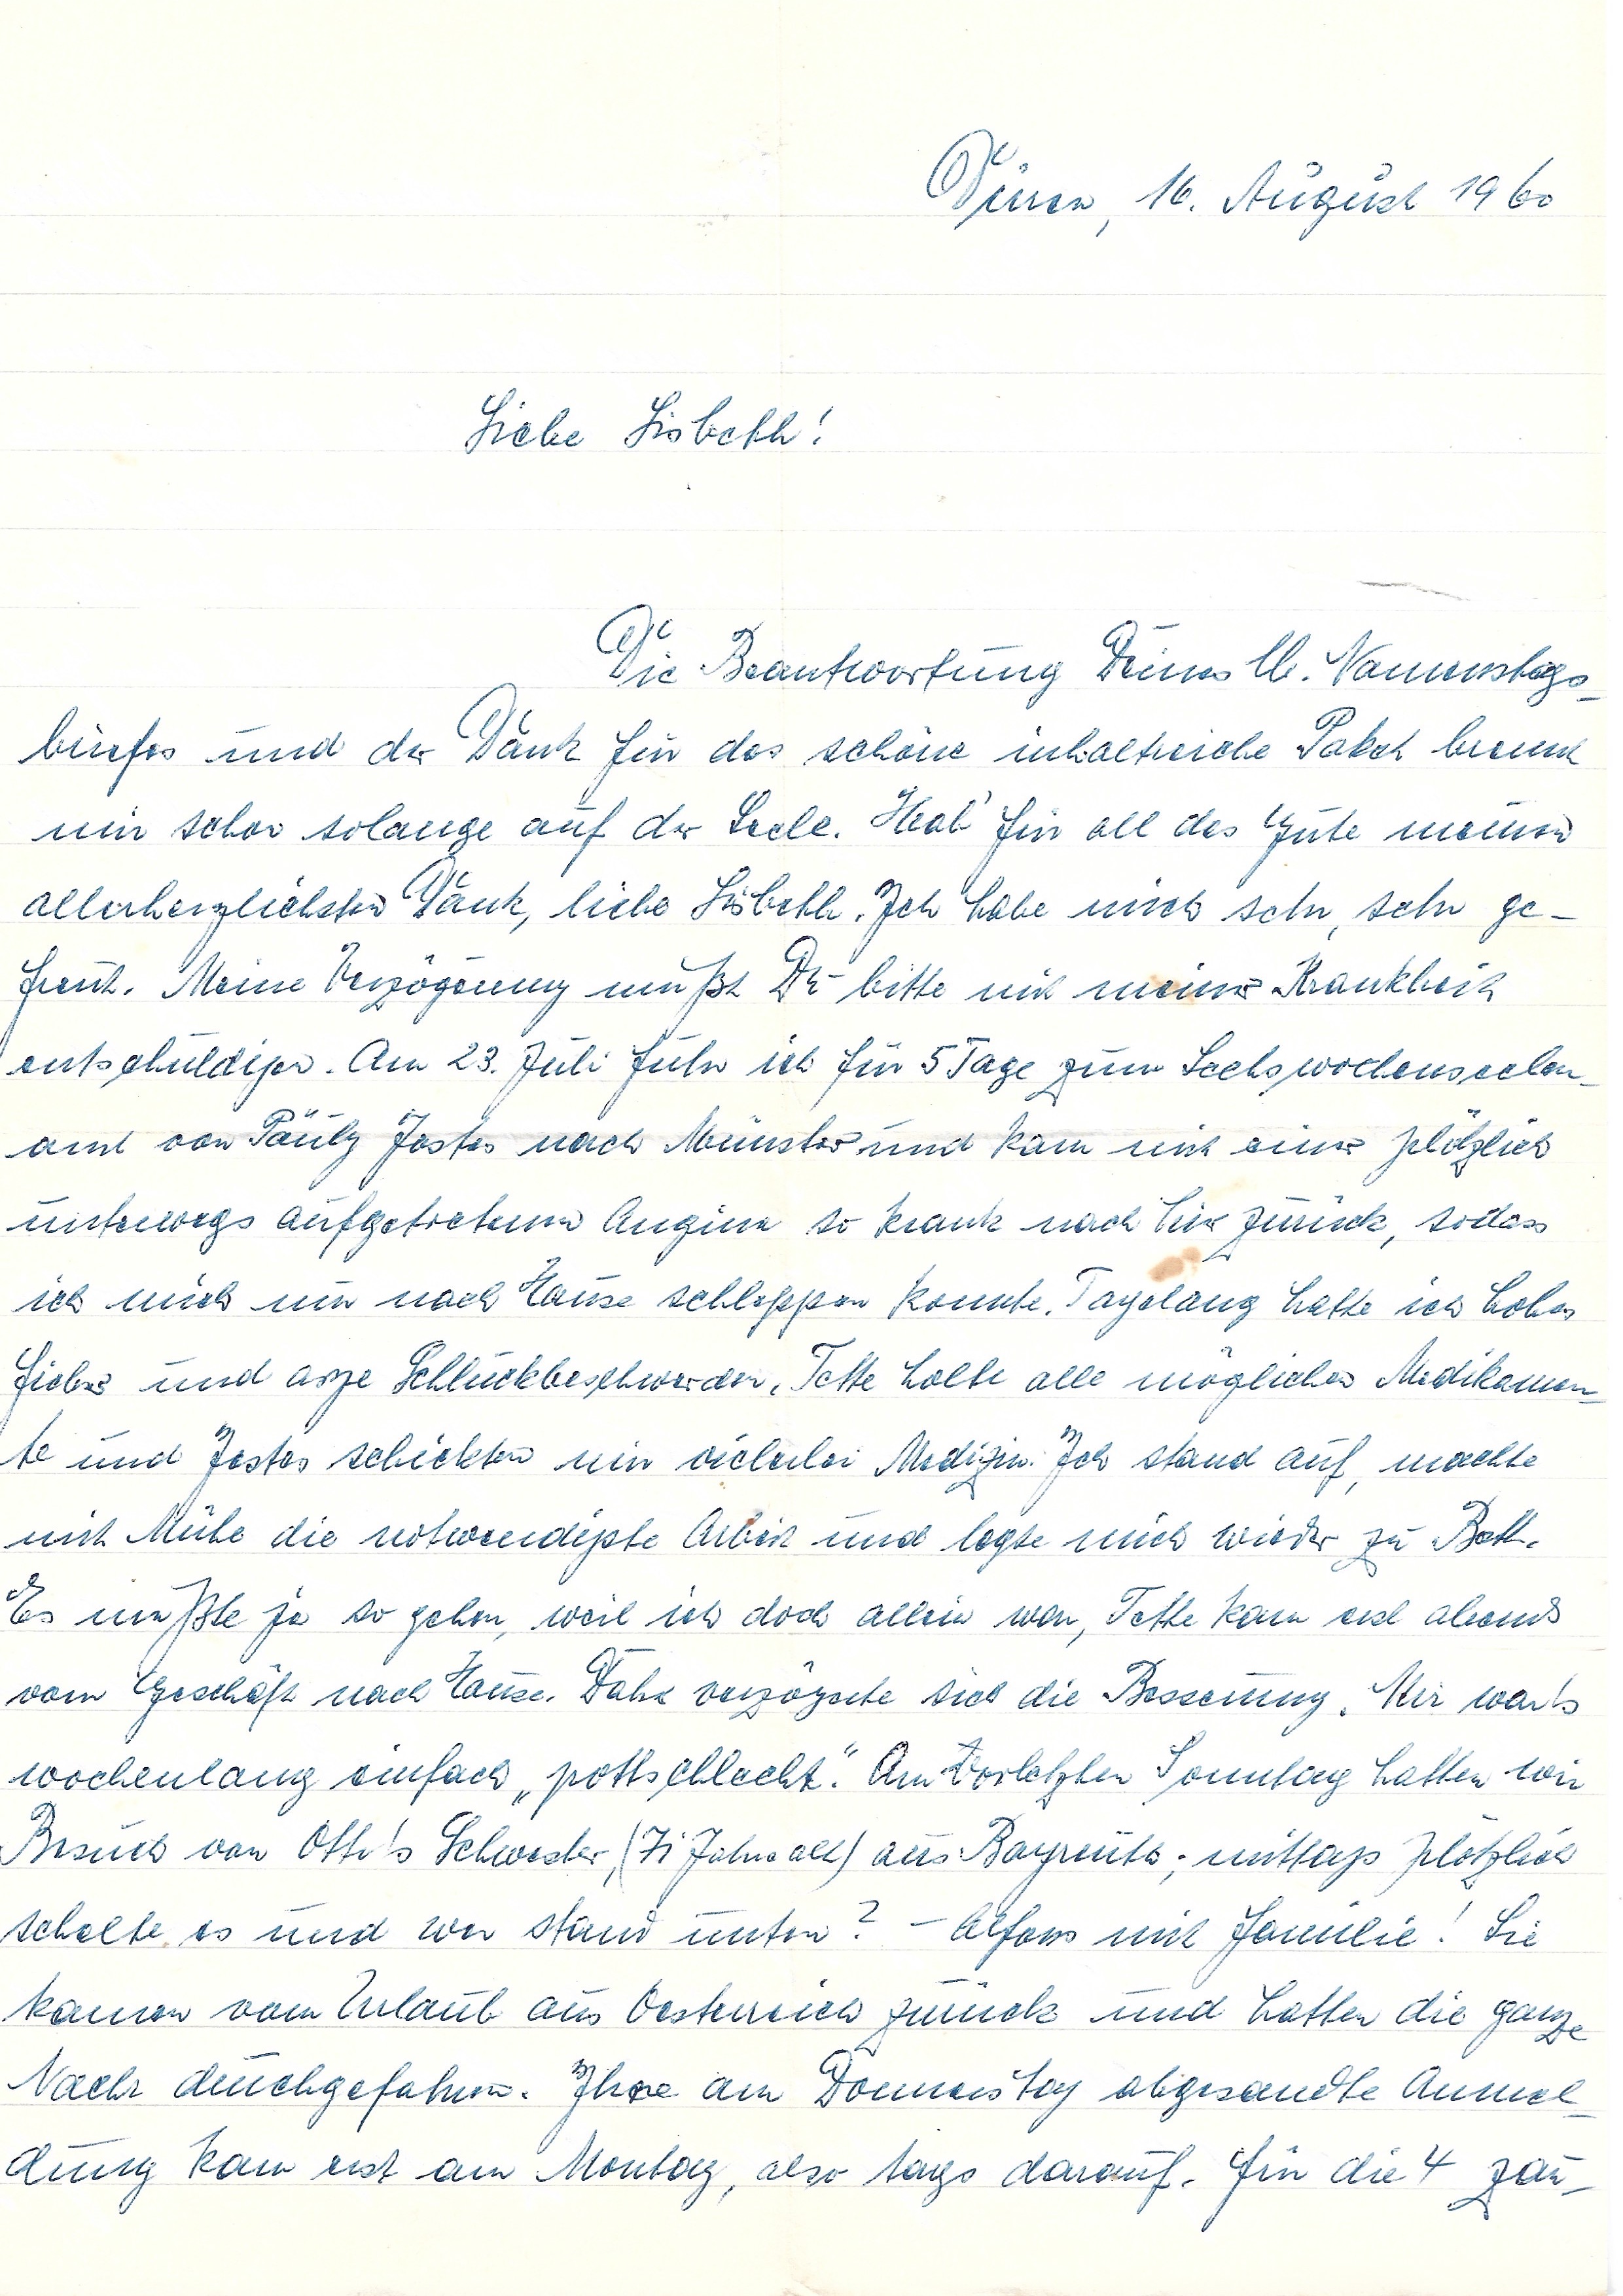 Düren, 16. August 1960
Liebe Lisbeth!
Die Beantwortung Deines lb. Namenstags-
briefes und der Dank für das schöne inhaltreiche Paket brennt
mir schon solange auf der Seele. Hab' für all das Gute meinen
allerherzlichsten Dank, liebe Lisbeth. Ich habe mich sehr, sehr ge-
freut. Meine Verzögerung mußt Du bitte mit meiner Krankheit
entschuldigen. Am 23. Juli fuhr ich für 5 Tage zum Sechswochenseelen-
amt von Jostes nach Münster und kam mit einer plötzlich
unterwegs aufgetretenen Angina so krank nach hier zurück, sodass
ich mich nur nach Hause schleppen konnte. Tagelang hatte ich hohes
Fieber und arge Schluckbeschwerden. Tette holte alle möglichen Medikamen-
te und Jostes schickten mir vielerlei Medizin. Ich stand auf, machte
mit Mühe die notwendigste Arbeit und legte mich wieder zu Bett.
Es mußte ja so gehen, weil ich doch allein war, Tette kam erst abends
vom Geschäft nach Hause. Daher verzögerte sich die Besserung. Mir war's
wochenlang einfach „pottschlecht". Am vorletzten Sonntag hatten wir
Besuch von Otto's Schwester, (71 Jahre alt) aus Bayreuth; mittags plötzlich
schellte es und wer stand unten? – Alfons mit Familie! Sie
kamen vom Urlaub aus Oesterreich zurück und hatten die ganze
Nacht durchgefahren. Ihre am Donnerstag abgesandte Anmel-
dung kam erst am Montag, also tags darauf. Für die 4 zau-